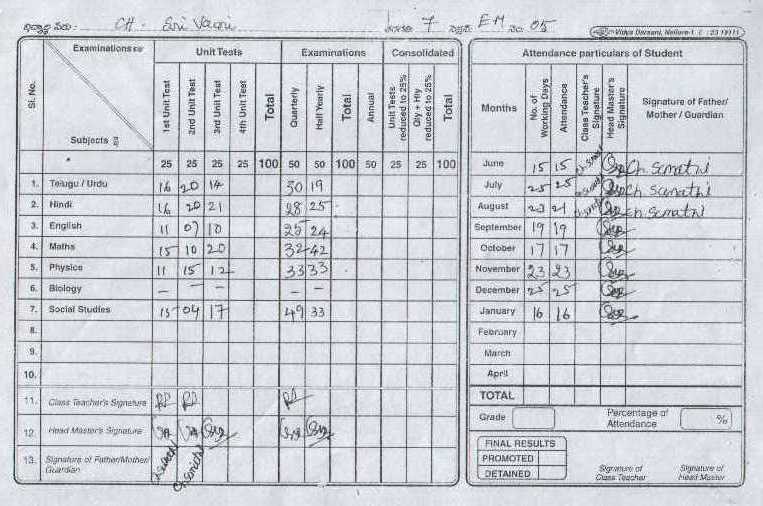 విద్యార్థి పేరు: CH. Sri Vagni తరగతి 7 సెక్షన్ EM నెం. 05
Vidya Darsani, Nellore-1
Examinations Unit Tests Examinations Consolidated
Sl. No. Subjects 1st Unit Test 2nd Unit Test 3rd Unit Test 4th Unit Test Total Quarterly Half Yearly Total Annual Unit Tests reduced to 25% Qly + Hly reduced to 25% Total
25 25 25 25 100 50 50 100 50 25 25 100
1. Telugu / Urdu 16 20 14 30 19
2. Hindi 16 20 21 28 25
3. English 11 07 10 25 24
4. Maths 15 10 20 32 42
5. Physice 11 15 12 33 33
6. Biology – – – – –
7. Social Studies 15 04 17 49 33
8.
9.
10.
11. Class Teacher's Signature
12. Head Master's Signature
13. Signature of Father/Mother/
Guardian
Attendance particulars of Student
Months No. of Working Days Attendance Class Teacher's Signature Head Master's Signature Signature of Father/ Mother / Guardian
June 15 15 Ch Sumathi
July 25 25 Ch Sumathi
August 23 21 Ch Sumathi
September 19 19
October 17 17
November 23 23
December 25 25
January 16 16
February
March
April
TOTAL
Grade Percentage of Attendance %
FINAL RESULTS
PROMOTED
DETAINED
Signature of Class Teacher
Signature of Head Master